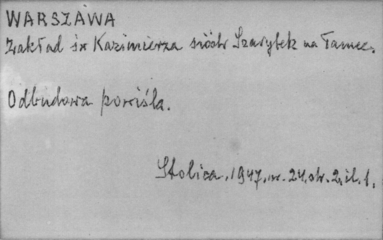 WARSZAWA
Zakład św Kazimierza sióstr Szarytek na Tamce.
Odbudowa powiśla.
Stolica. 1947. nr. 24. str. 2. il. 1.